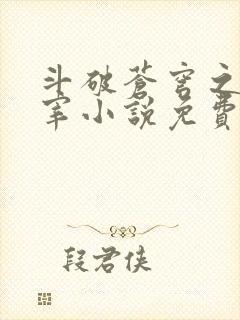 斗破蒼穹之
宰小說免費
段君俠